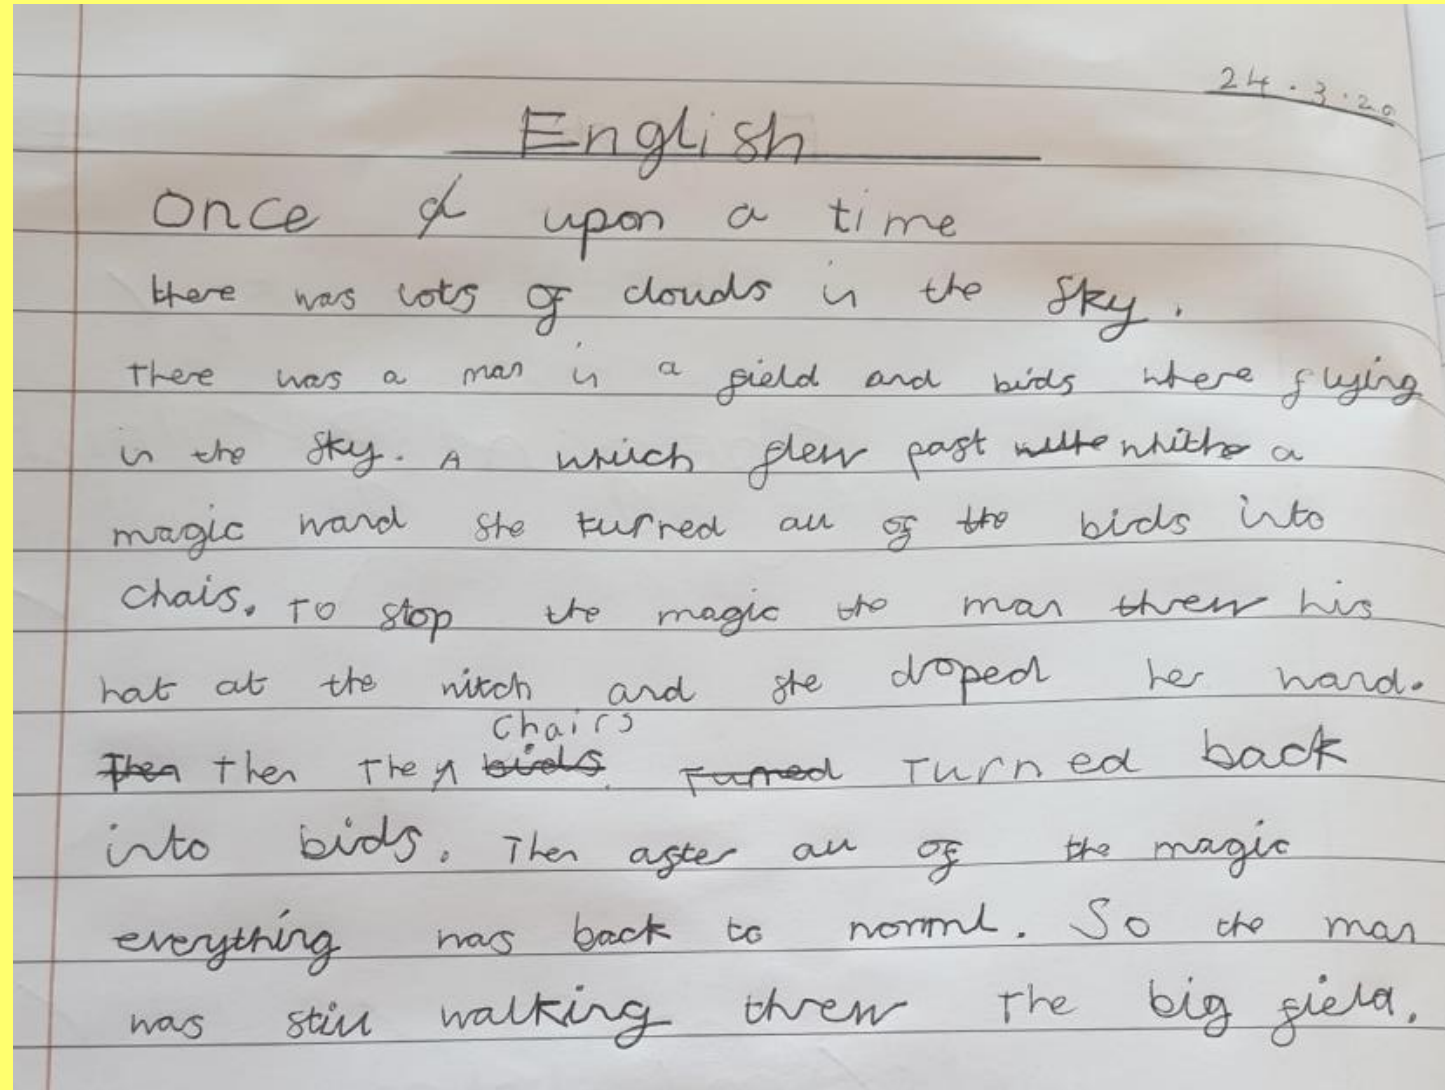 24.3.20
English
Once upon a time
there was lots of clouds in the sky.
There was a man in a field and birds where flying
in the sky. A which flew past white a
magic wand she turred all of the birds into
chais. To stop the magic the man threw his
hat at the witch and she droped her wand.
chairs
Then Then They birds Turned Turned back
into birds. Then after all of the magic
everything was back to norml. So the man
was still walking threw The big field.